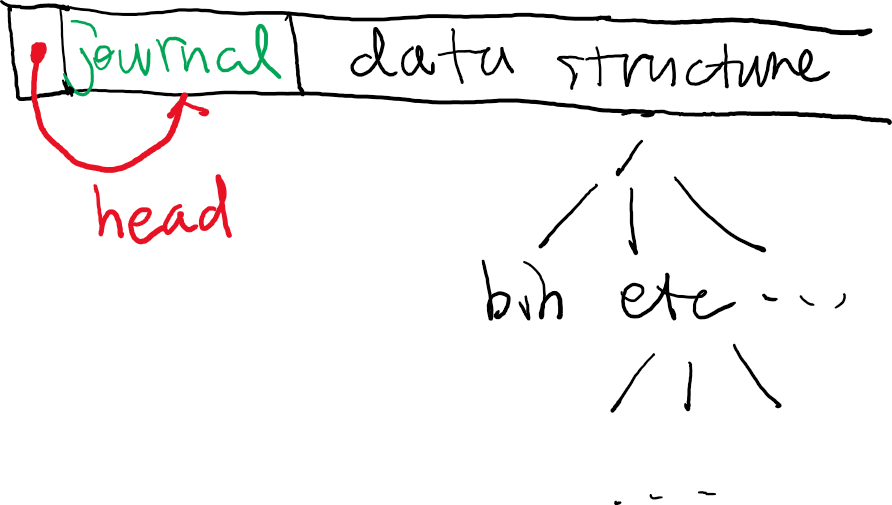 journal data structure
head
/
bin etc ...
...